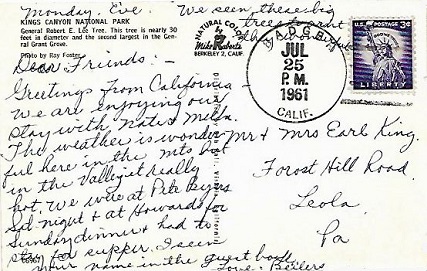 Monday, Eve. We seen these big
trees
KINGS CANYON NATIONAL PARK
General Robert E. Lee Tree. This tree is nearly 30
feet in diameter and the second largest in the Gen-
eral Grant Grove.
Photo by Ray Foster
NATURAL COLOR
Mike Roberts
BERKELEY 2, CALIF.
JUL
25
P.M.
1961
CALIF.
U.S. POSTAGE 3¢
LIBERTY
Dear Friends: -
Greetings from California -
We are enjoying our
stay with Nate & Melba.
The weather is wonder-
ful here in the mts but
in the Valley it really
hot. We were at Pete Beyers
Sat night & at Howards for
Sunday dinner & had to
stay for supper. I seen
your name in the guest book
Love: Beilers
Mr & Mrs Earl King.
Forost Hill Road.
Leola,
Pa